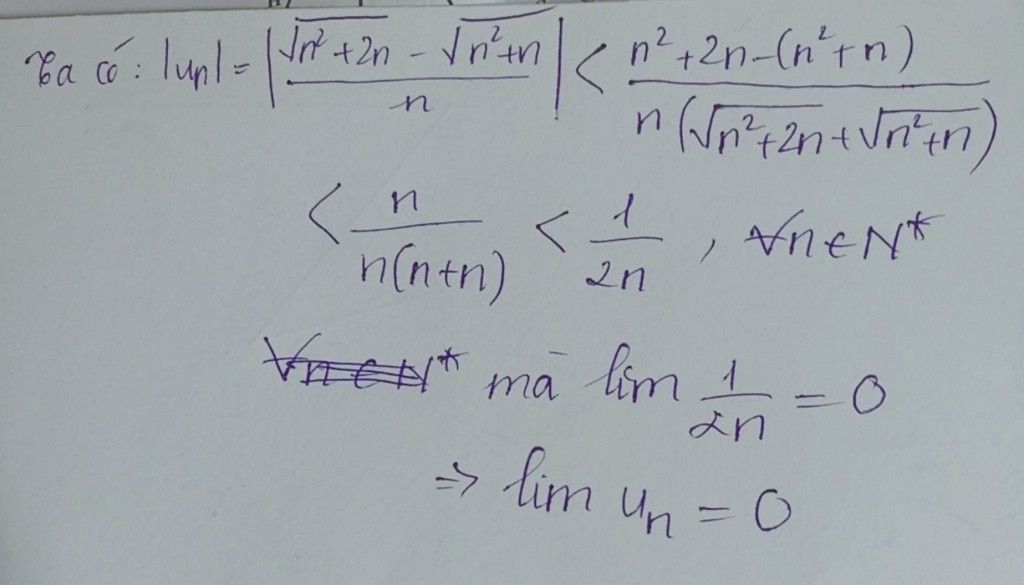 Ta có: |uₙ| = |(√(n²+2n) - √(n²+n))/n| < (n²+2n-(n²+n))/(n(√(n²+2n)+√(n²+n)))
< n/(n(n+n)) < 1/(2n), ∀n∈N*
∀n∈N* mà lim 1/(2n) = 0
⇒ lim uₙ = 0